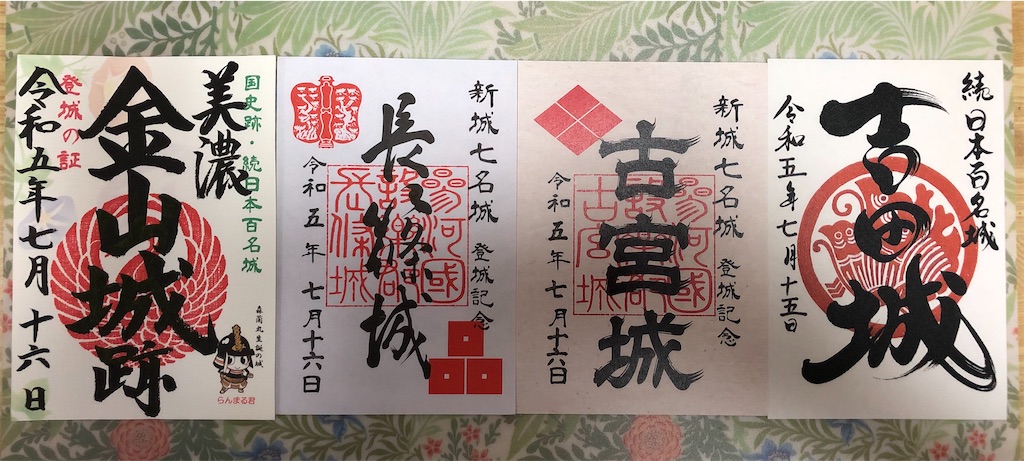 国史跡・続日本百名城
美濃
金山城跡
登城の証
令和五年七月十六日
森蘭丸生誕の城
らんまる君
新城七名城 登城記念
長篠城
令和五年七月十六日
新城七名城 登城記念
古宮城
令和五年七月十六日
古宮城
続日本百名城
吉田城
令和五年七月十五日